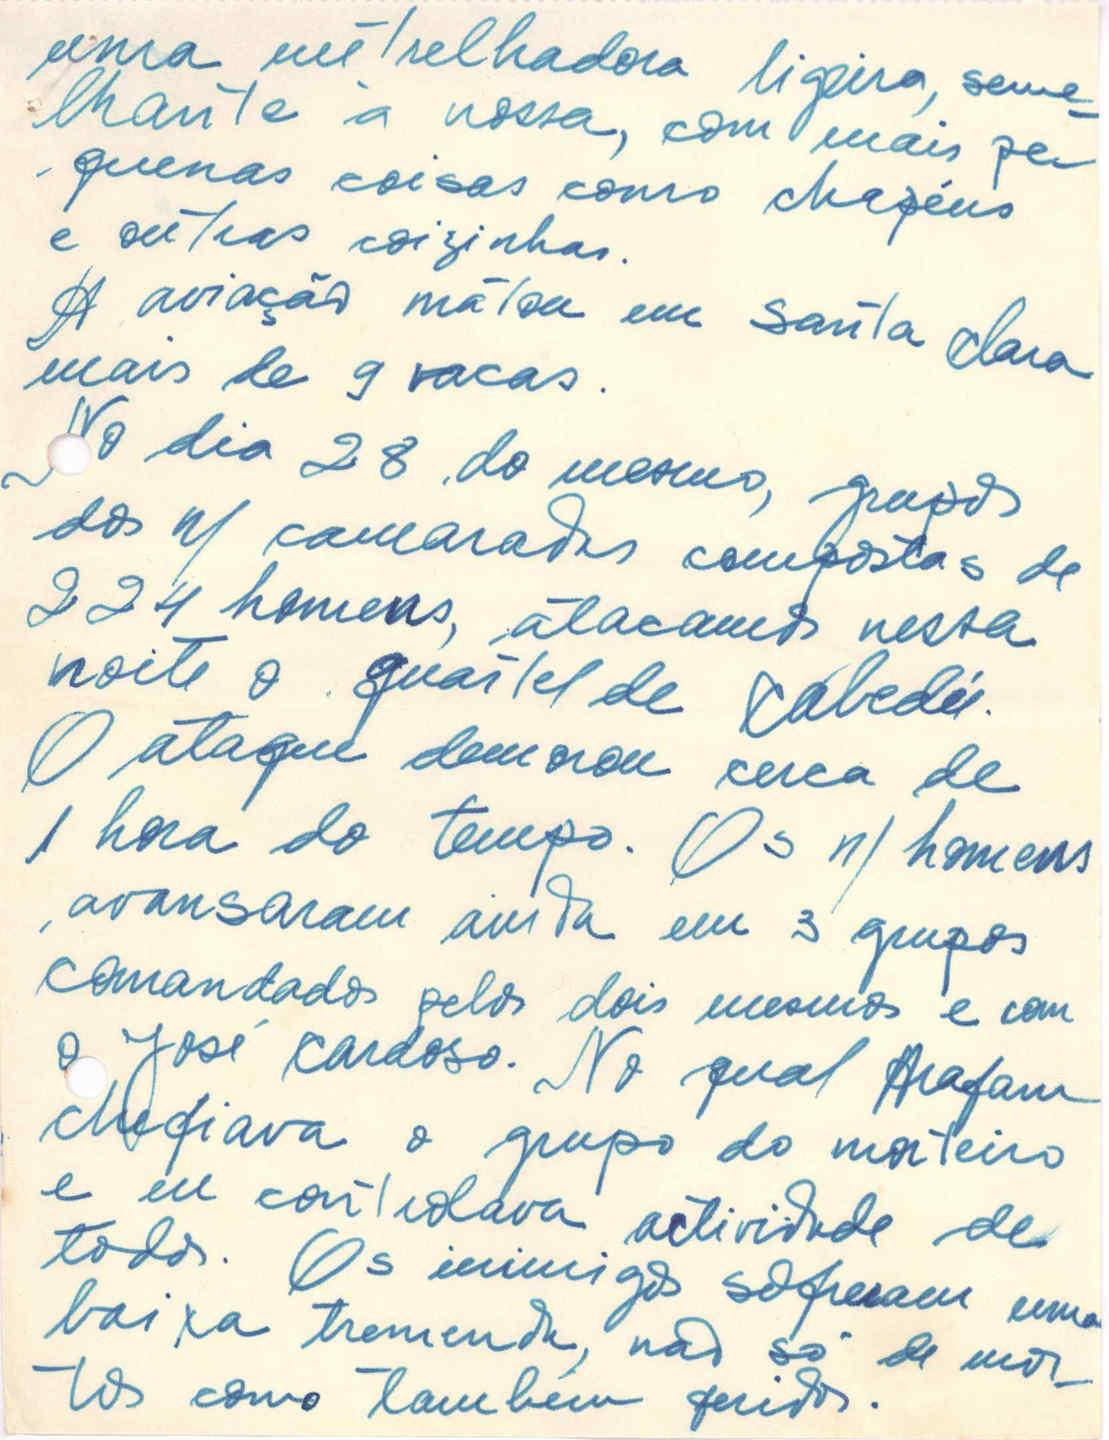 uma metralhadora ligeira, seme-
lhante à nossa, com mais pe-
quenas coisas como chapéus
e outras coizinhas.
A aviação matou em Santa Clara
mais de 9 vacas.
No dia 28 do mesmo, grupos
dos n/ camaradas compostas de
224 homens, atacamos nessa
noite o quartel de Cabedú.
O ataque demorou cerca de
1 hora do tempo. Os n/ homens
avansaram ainda em 3 grupos
comandados pelos dois mesmos e com
o José Cardoso. No qual Arafam
chefiava o grupo do morteiro
e eu controlava actividade de
todos. Os inimigos sofreram uma
baixa tremenda, não só de mor-
tos como também feridos.